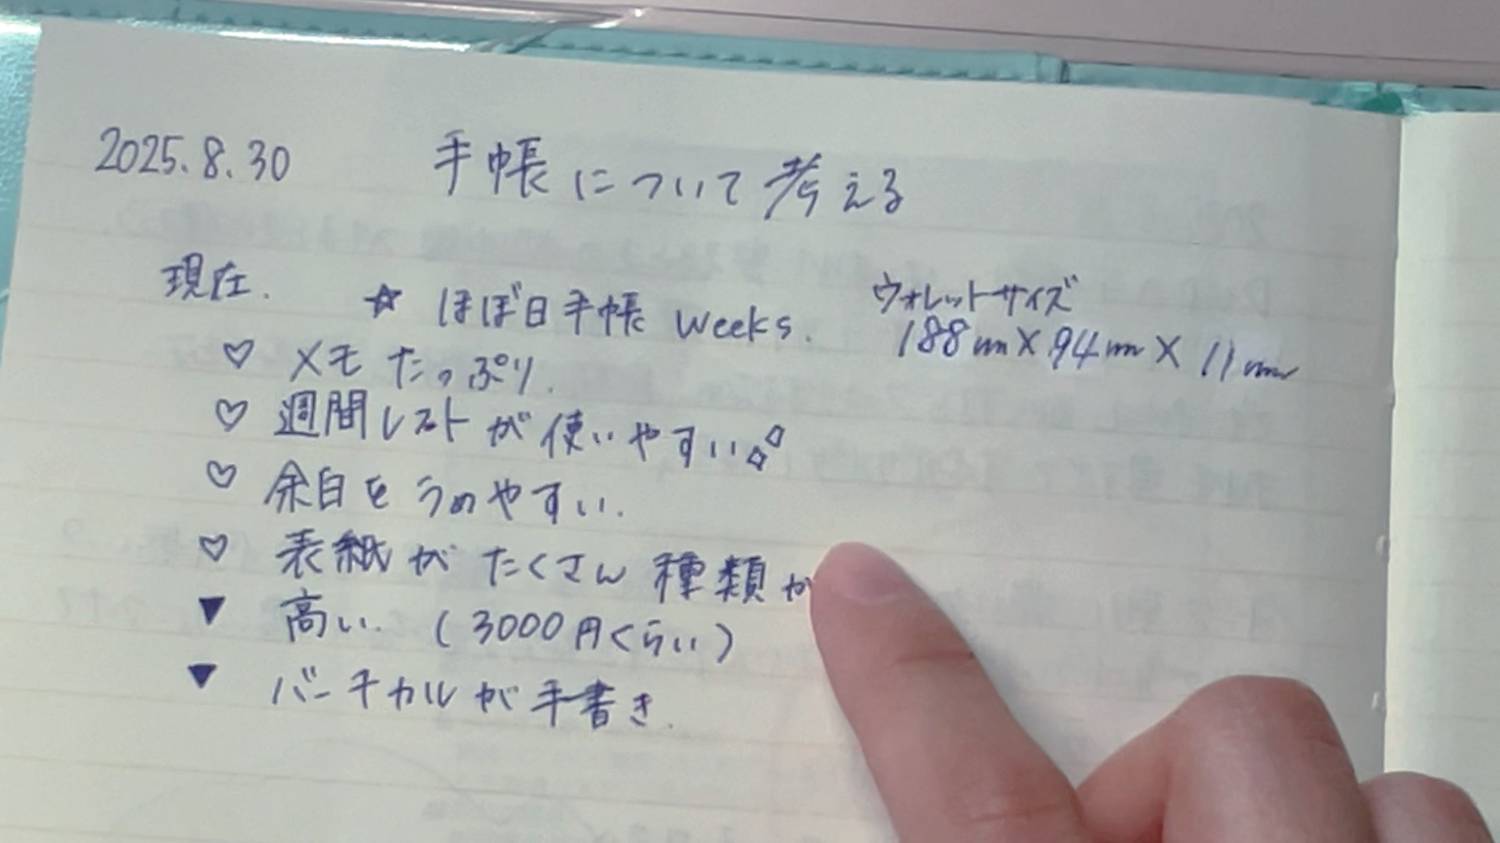 2025.8.30 手帳について考える
現在. ☆ ほぼ日手帳 weeks. ウォレットサイズ
188mm×94mm×11mm
♡ メモたっぷり.
♡ 週間レフトが使いやすい
♡ 余白をうめやすい.
♡ 表紙がたくさん種類が
▼ 高い. (3000円くらい)
▼ バーチカルが手書き.